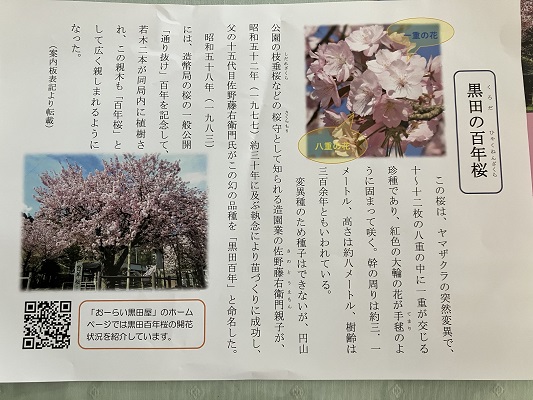 黒田の百年桜
くろだ ひゃくねんざくら
この桜は、ヤマザクラの突然変異で、
十〜十二枚の八重の中に一重が交じる
珍種であり、紅色の大輪の花が手毬のよ
てまり
うに固まって咲く。幹の周りは約三．一
メートル、高さは約八メートル、樹齢は
三百余年ともいわれている。
変異種のため種子はできないが、円山
公園の枝垂桜などの桜守として知られる造園業の佐野藤右衛門親子が、
しだれざくら さくらもり さのとうえもん
昭和五十二年（一九七七）約三十年に及ぶ執念により苗づくりに成功し、
父の十五代目佐野藤右衛門氏がこの幻の品種を「黒田百年」と命名した。
昭和五十八年（一九八三）
には、造幣局の桜の一般公開
「通り抜け」百年を記念して、
若木二本が同局内に植樹さ
れ、この親木も「百年桜」と
して広く親しまれるように
なった。
（案内板表記より転載）
一重の花
八重の花
「おーらい黒田屋」のホーム
ページでは黒田百年桜の開花
状況を紹介しています。